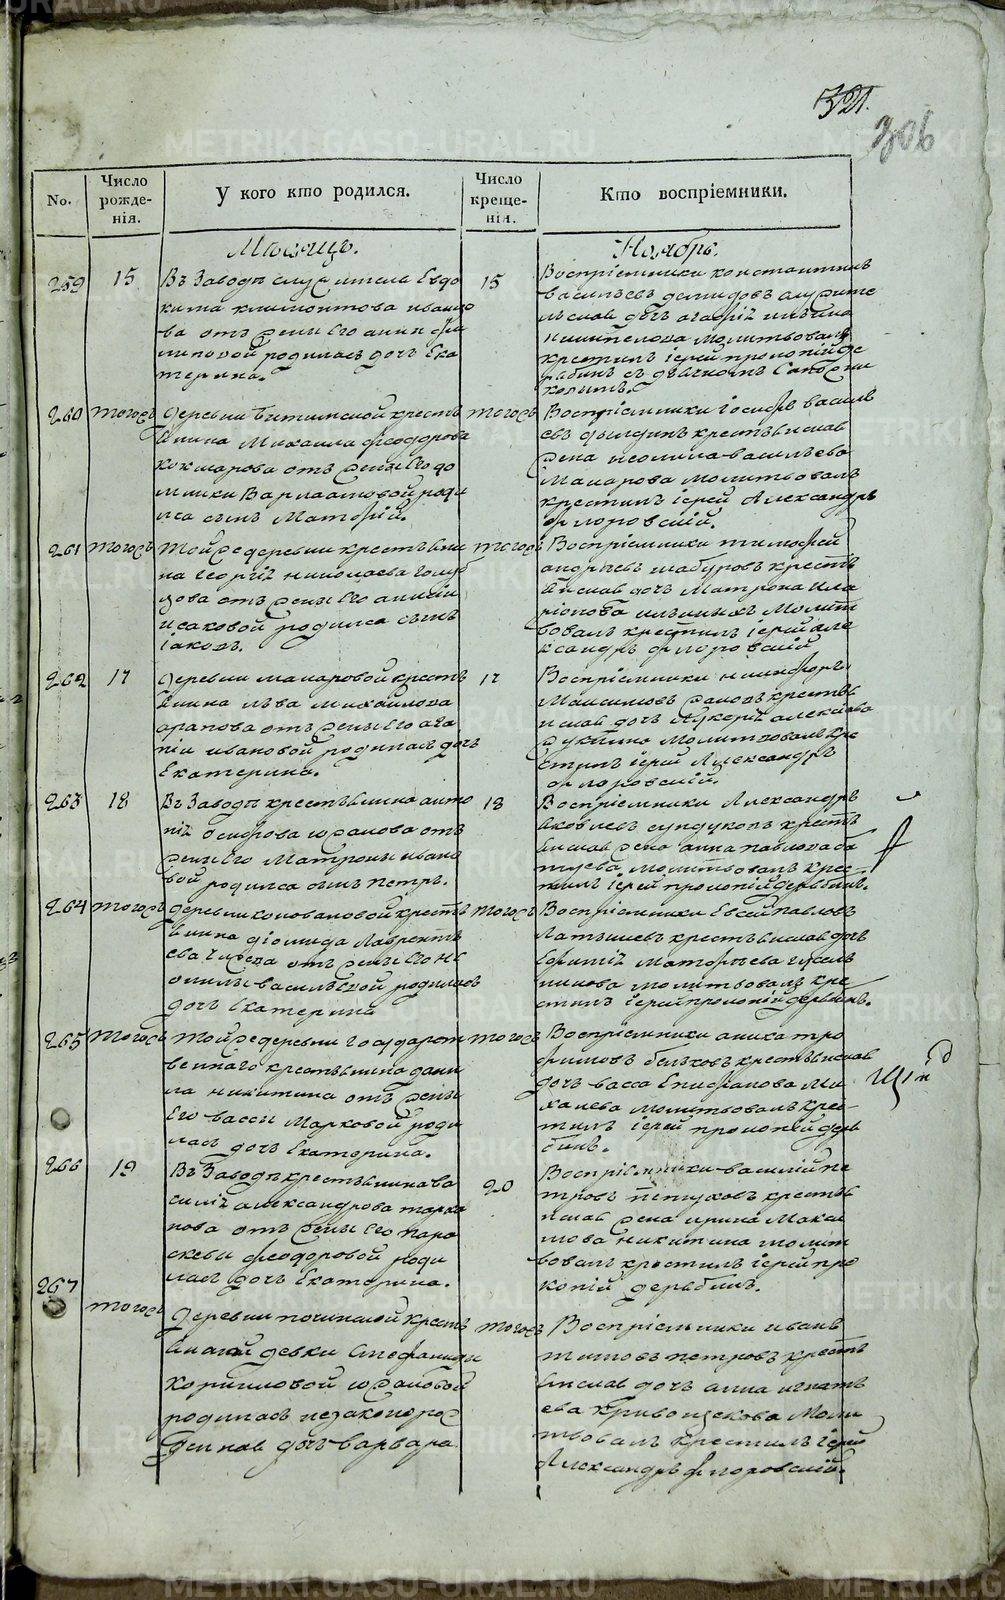 321.
306
No.
Число рожденія.
У кого кто родился.
Число крещенія.
Кто воспріемники.
Мѣсяцъ.
Ноябрь.
259
15
Въ Заводѣ служителя Евдо
кима климонтова ивано
ва отъ жены Его анны фи
липовой родилась дочь Ека
терина.
15
Воспріемники константинъ
васильевъ демидовъ служите
льская дочь
молитвовалъ
крестилъ іерей прокопій де
рябинъ съ діачкомъ
260
тогожъ
деревни Битимской крестья
нина Михаила феодорова
кокшарова отъ жены Его до
мники Варлаамовой роди
лся сынъ Матфій.
тогожъ
Воспріемники іосифъ василь
евъ крестьянская
жена неонила васильева
Макарова молитвовалъ
крестилъ іерей Александръ
флоровскій.
261
тогожъ
той же деревни крестьяни
на георгія николаева голуб
цова отъ жены Его
исаковой родился сынъ
іаковъ.
тогожъ
Воспріемники тимофей
андреевъ шабуровъ крестья
нская дочь Матрона ила
ріонова молит
вовалъ крестилъ іерей але
ксандръ флоровскій
262
17
деревни макаровой крестья
нина льва михайлова
арапова отъ жены Его ага
піи ивановой родилась дочь
Екатерина.
17
Воспріемники никифоръ
Максимовъ крестья
нская дочь алексіева
молитвовалъ кре
стилъ іерей Александръ
флоровскій.
263
18
Въ Заводѣ крестьянина анто
нія осифова южакова отъ
жены Его Матроны ивано
вой родился сынъ петръ.
18
Воспріемники Александръ
яковлевъ сундуковъ крестья
нская жена анна павлова ба
туева молитвовалъ крес
тилъ іерей прокопій дерябинъ.
264
тогожъ
деревни коноваловой крестья
нина діомида Лаврентье
ва отъ жены Его не
онилы васильевой родилась
дочь Екатерина
тогожъ
Воспріемники Евсей павловъ
Латышевъ крестьянская дочь
Матфѣева
молитвовалъ кре
стилъ іерей прокопій дерябинъ.
265
тогожъ
той же деревни государст
веннаго крестьянина дани
ла никитина отъ жены
Его вассы Марковой роди
лась дочь Екатерина.
тогожъ
Воспріемники аника тро
фимовъ бѣлковъ крестьянская
дочь васса Епифанова Ми
халева молитвовалъ крес
тилъ іерей прокопій деря
бинъ.
266
19
Въ Заводѣ крестьянина ва
силія александрова тарха
нова отъ жены Его пара
скевы феодоровой роди
лась дочь Екатерина.
20
Воспріемники василій пе
тровъ пѣтуховъ крестья
нская жена ирина Макси
мова никитина молит
вовалъ крестилъ іерей про
копій дерябинъ.
267
тогожъ
Деревни починкой крестья
нской девки Стефаниды
Корниловой южаковой
родилась незаконорож
денная дочь варвара
тогожъ
Воспріемники иванъ
титовъ петровъ крестья
нская дочь анна игнать
ева кривощекова Моли
твовалъ крестилъ іерей
Александръ флоровскій.
METRIKI.GASO-URAL.RU